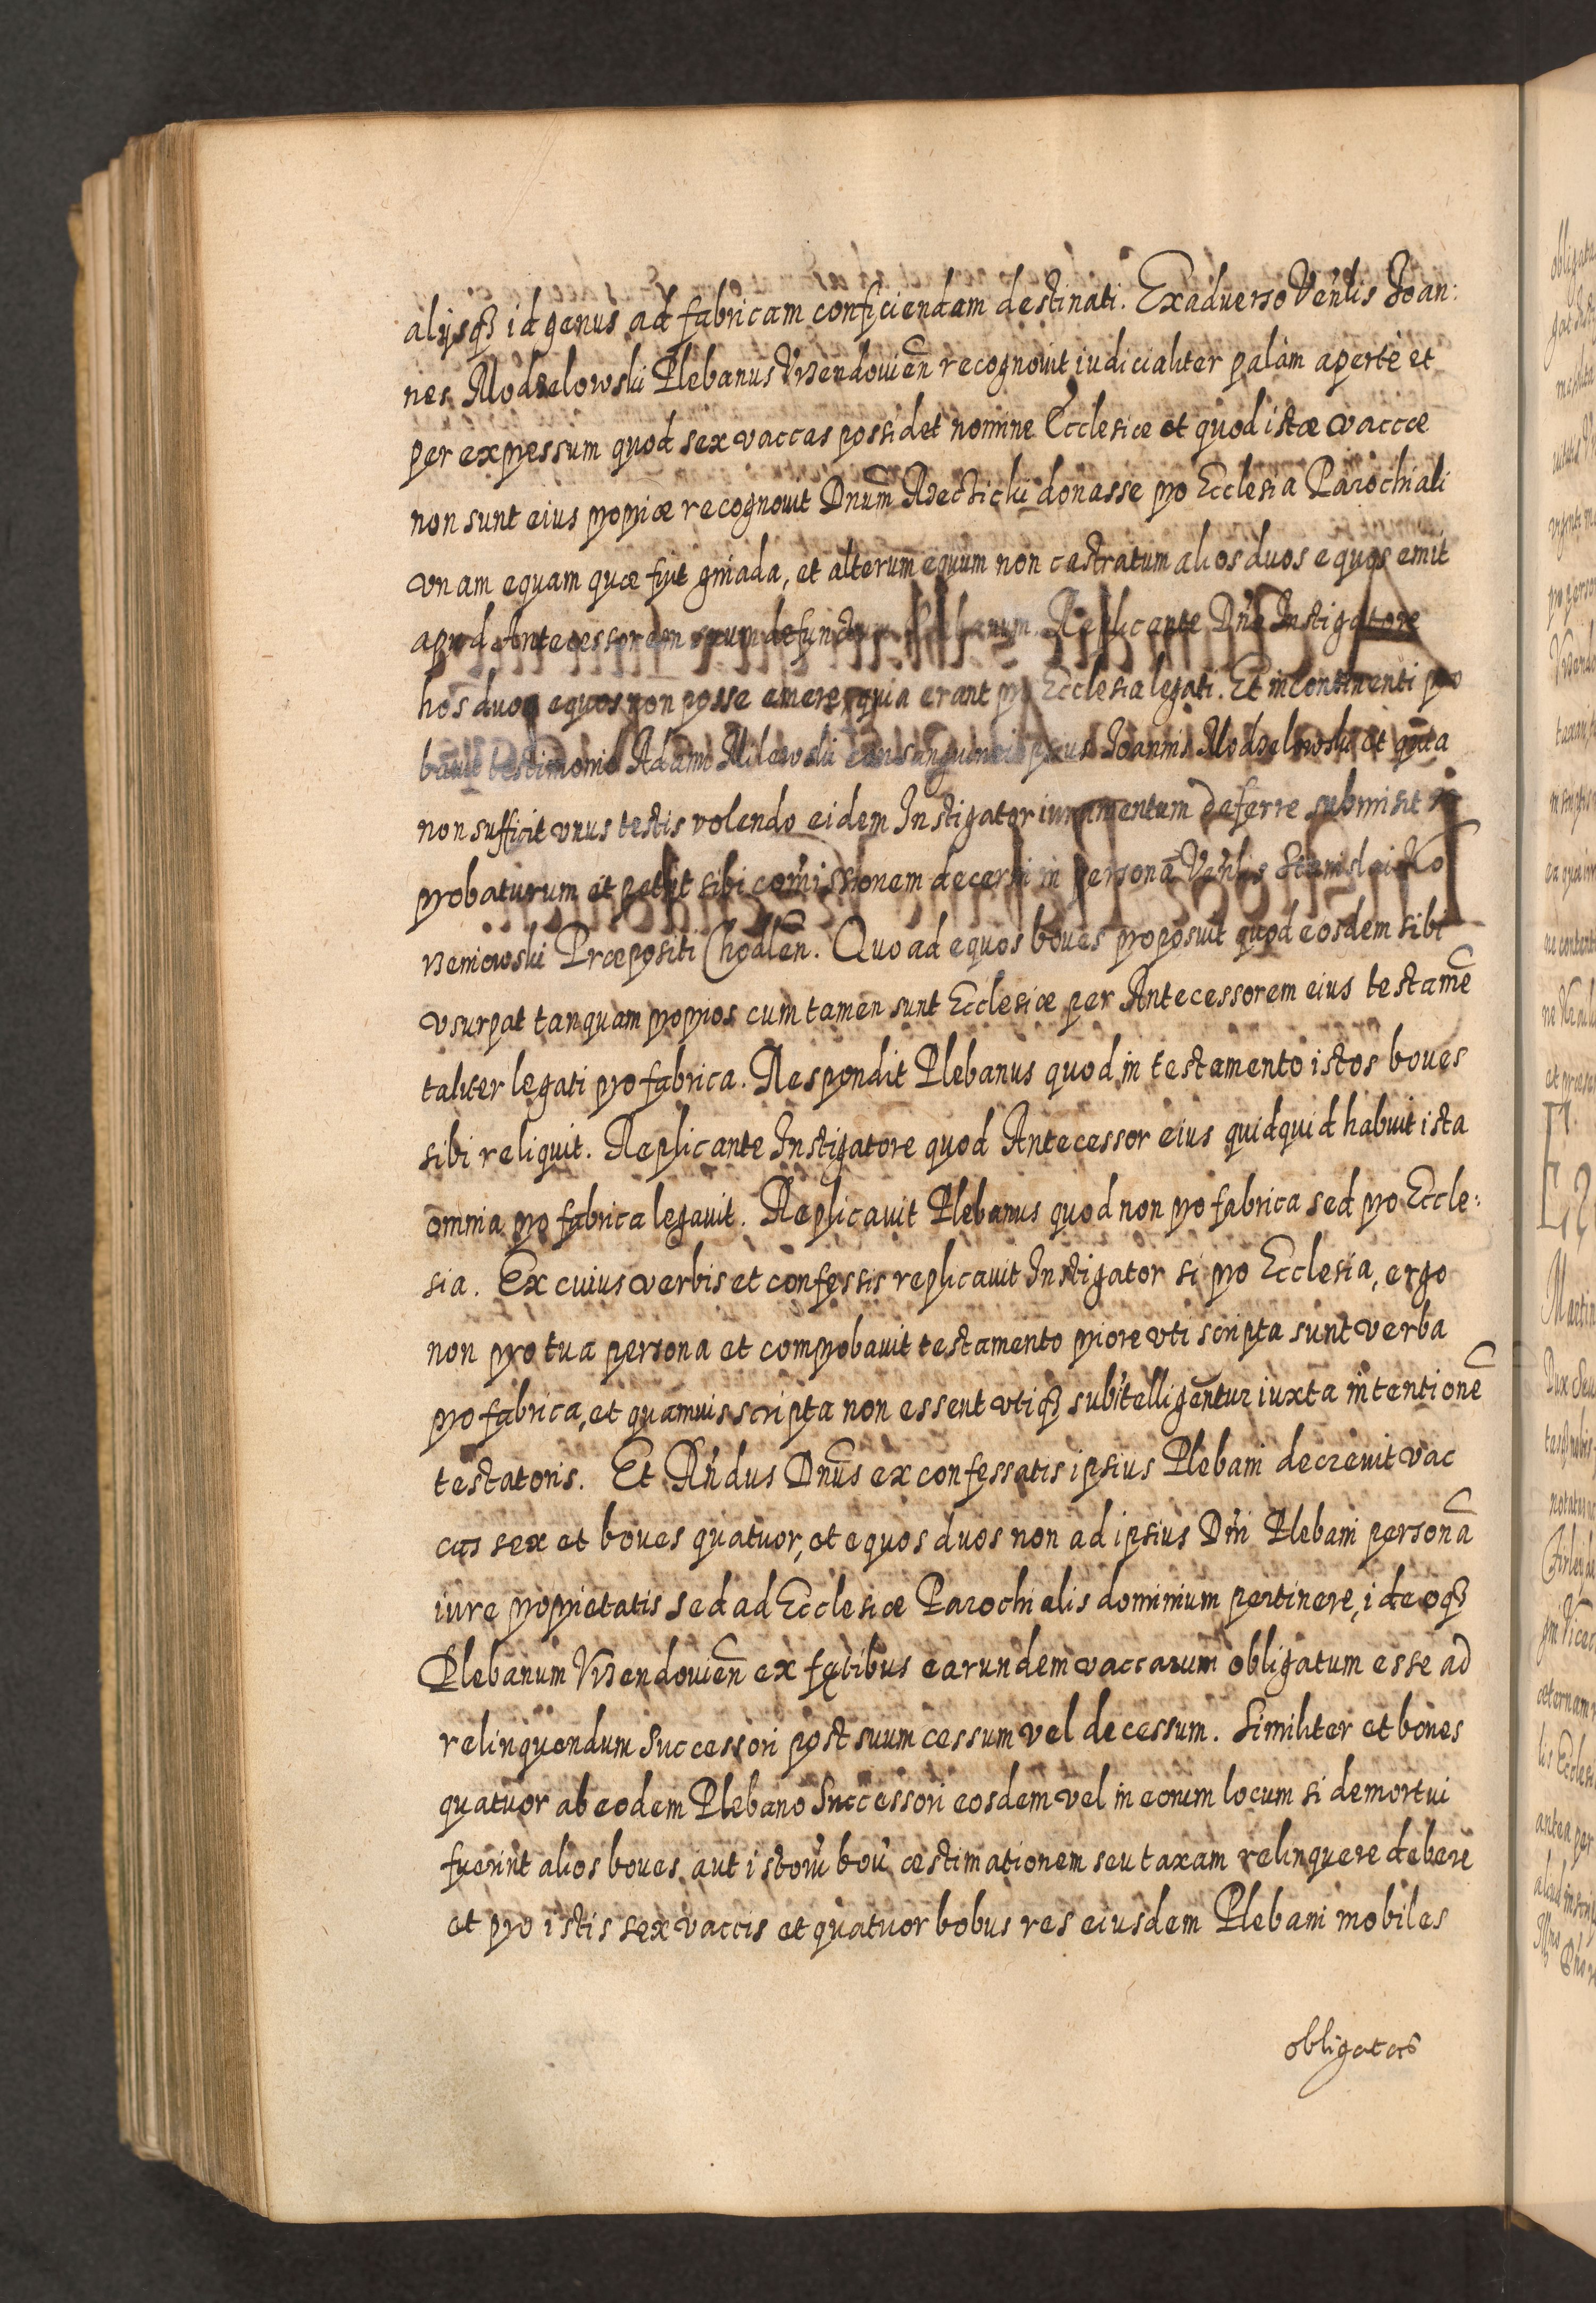 alijsq3 id genus ad fabricam conficiendam destinati. Ex aduerso Venlis Ioan:
nes Modzelowski Plebanus Vrzendouien recognouit iudicialiter palàm apertè et
per expressum quod sex vaccas possidet nomine Ecclesiæ et quod istæ vaccæ
non sunt eius propriæ recognouit Dnum donasse pro Ecclesia Parochiali
vnam equam quæ fuit gniada, et alterum equum non castratum alios duos equos emit
apud Antecessorem suum defunctum Plebanum. Replicante Dno Instigatore
hos duos equos non posse emere, quia erant pro Ecclesia legati. Et incontinenti pro
bauit testimonio Adami Milewski consanguinei ipsius Ioannis Modzelowski et quia
non sufficit vnus testis volendo eidem Instigator iuramentum deferre submisit se
probaturum et petijt sibi comissionem decerni in persona Venlis Stanislai Ko
rzeniowski Præpositi Chodlen. Quo ad equos boues proposuit quod eosdem sibi
vsurpat tanquam proprios cum tamen sunt Ecclesiæ per Antecessorem eius testame
taliter legati pro fabrica. Respondit Plebanus quod in testamento istos boues
sibi reliquit. Replicante Instigatore quod Antecessor eius quidquid habuit ista
omnia pro fabrica legauit. Replicauit Plebanus quod non pro fabrica sed pro Eccle:
sia. Ex cuius verbis et confessis replicauit Instigator si pro Ecclesia, ergo
non pro tua persona et comprobauit testamento priore vti scripta sunt verba
pro fabrica, et quamuis scripta non essent vtiq3 subitelligentur iuxta intentione
testatoris. Et Rndus Dnus ex confessatis ipsius Plebani decreuit vac
cas sex et boues quatuor, et equos duos non ad ipsius Dni Plebani persona
iure proprietatis sed ad Ecclesiæ Parochialis dominium pertinere, ideoq3
Plebanum Vrzendouien ex fętibus earundem vaccarum obligatum esse ad
relinquendum Successori post suum cessum vel decessum. Similiter et boues
quatuor ab eodem Plebano Successori eosdem vel in eorum locum si demortui
fuerint alios boues aut istoru bou æstimationem seu taxam relinquere debere
et pro istis sex vaccis et quatuor bobus res eiusdem Plebani mobiles
obligatas